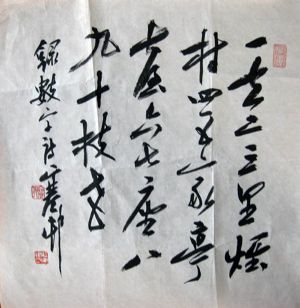 一去二三里煙
村四五家亭
臺六七座八
九十枝花
錄數字詩